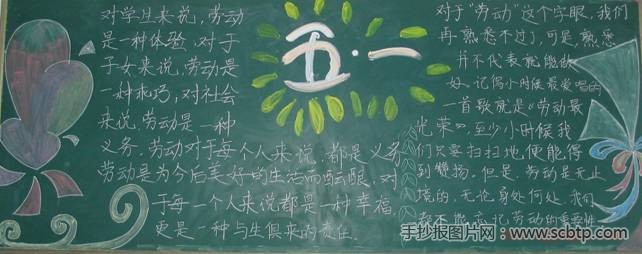 对学生来说，劳动
是一种体验，对于
子女来说，劳动是
一种技巧，对社会
来说，劳动是一种
义务。劳动对于每个人来说，都是义务
劳动是为今后美好的生活而酝酿，对
于每一个人来说都是一种幸福，
更是一种与生俱来的责任。
五·一
对于“劳动”这个字眼，我们
再熟悉不过了，可是，熟悉
并不代表就能做
好。记得小时候最爱唱的
一首歌就是《劳动最
光荣》，至少小时候我
们只要扫扫地，便能得
到赞扬。但是，劳动是无止
境的，无论身处何处，我们
都不能忘记劳动的重要性
手抄报图片网：www.scbtp.com